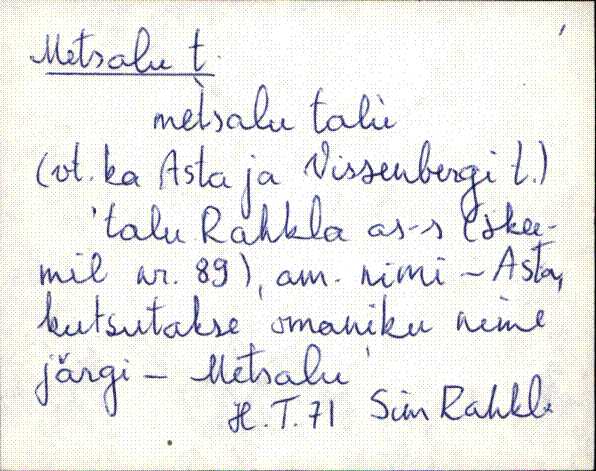 Metsalu t.
mètsalu talu
(vt. ka Asta ja Vissenbergi t.)
'talu Rahkla as-s (skee-
mil nr. 89), am. nimi – Asta,
kutsutakse omaniku nime
järgi – Metsalu'
H.T. 71 Sim Rahkla